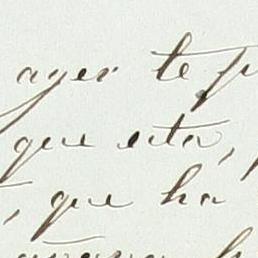 ayer te p
que esta,
, que ha